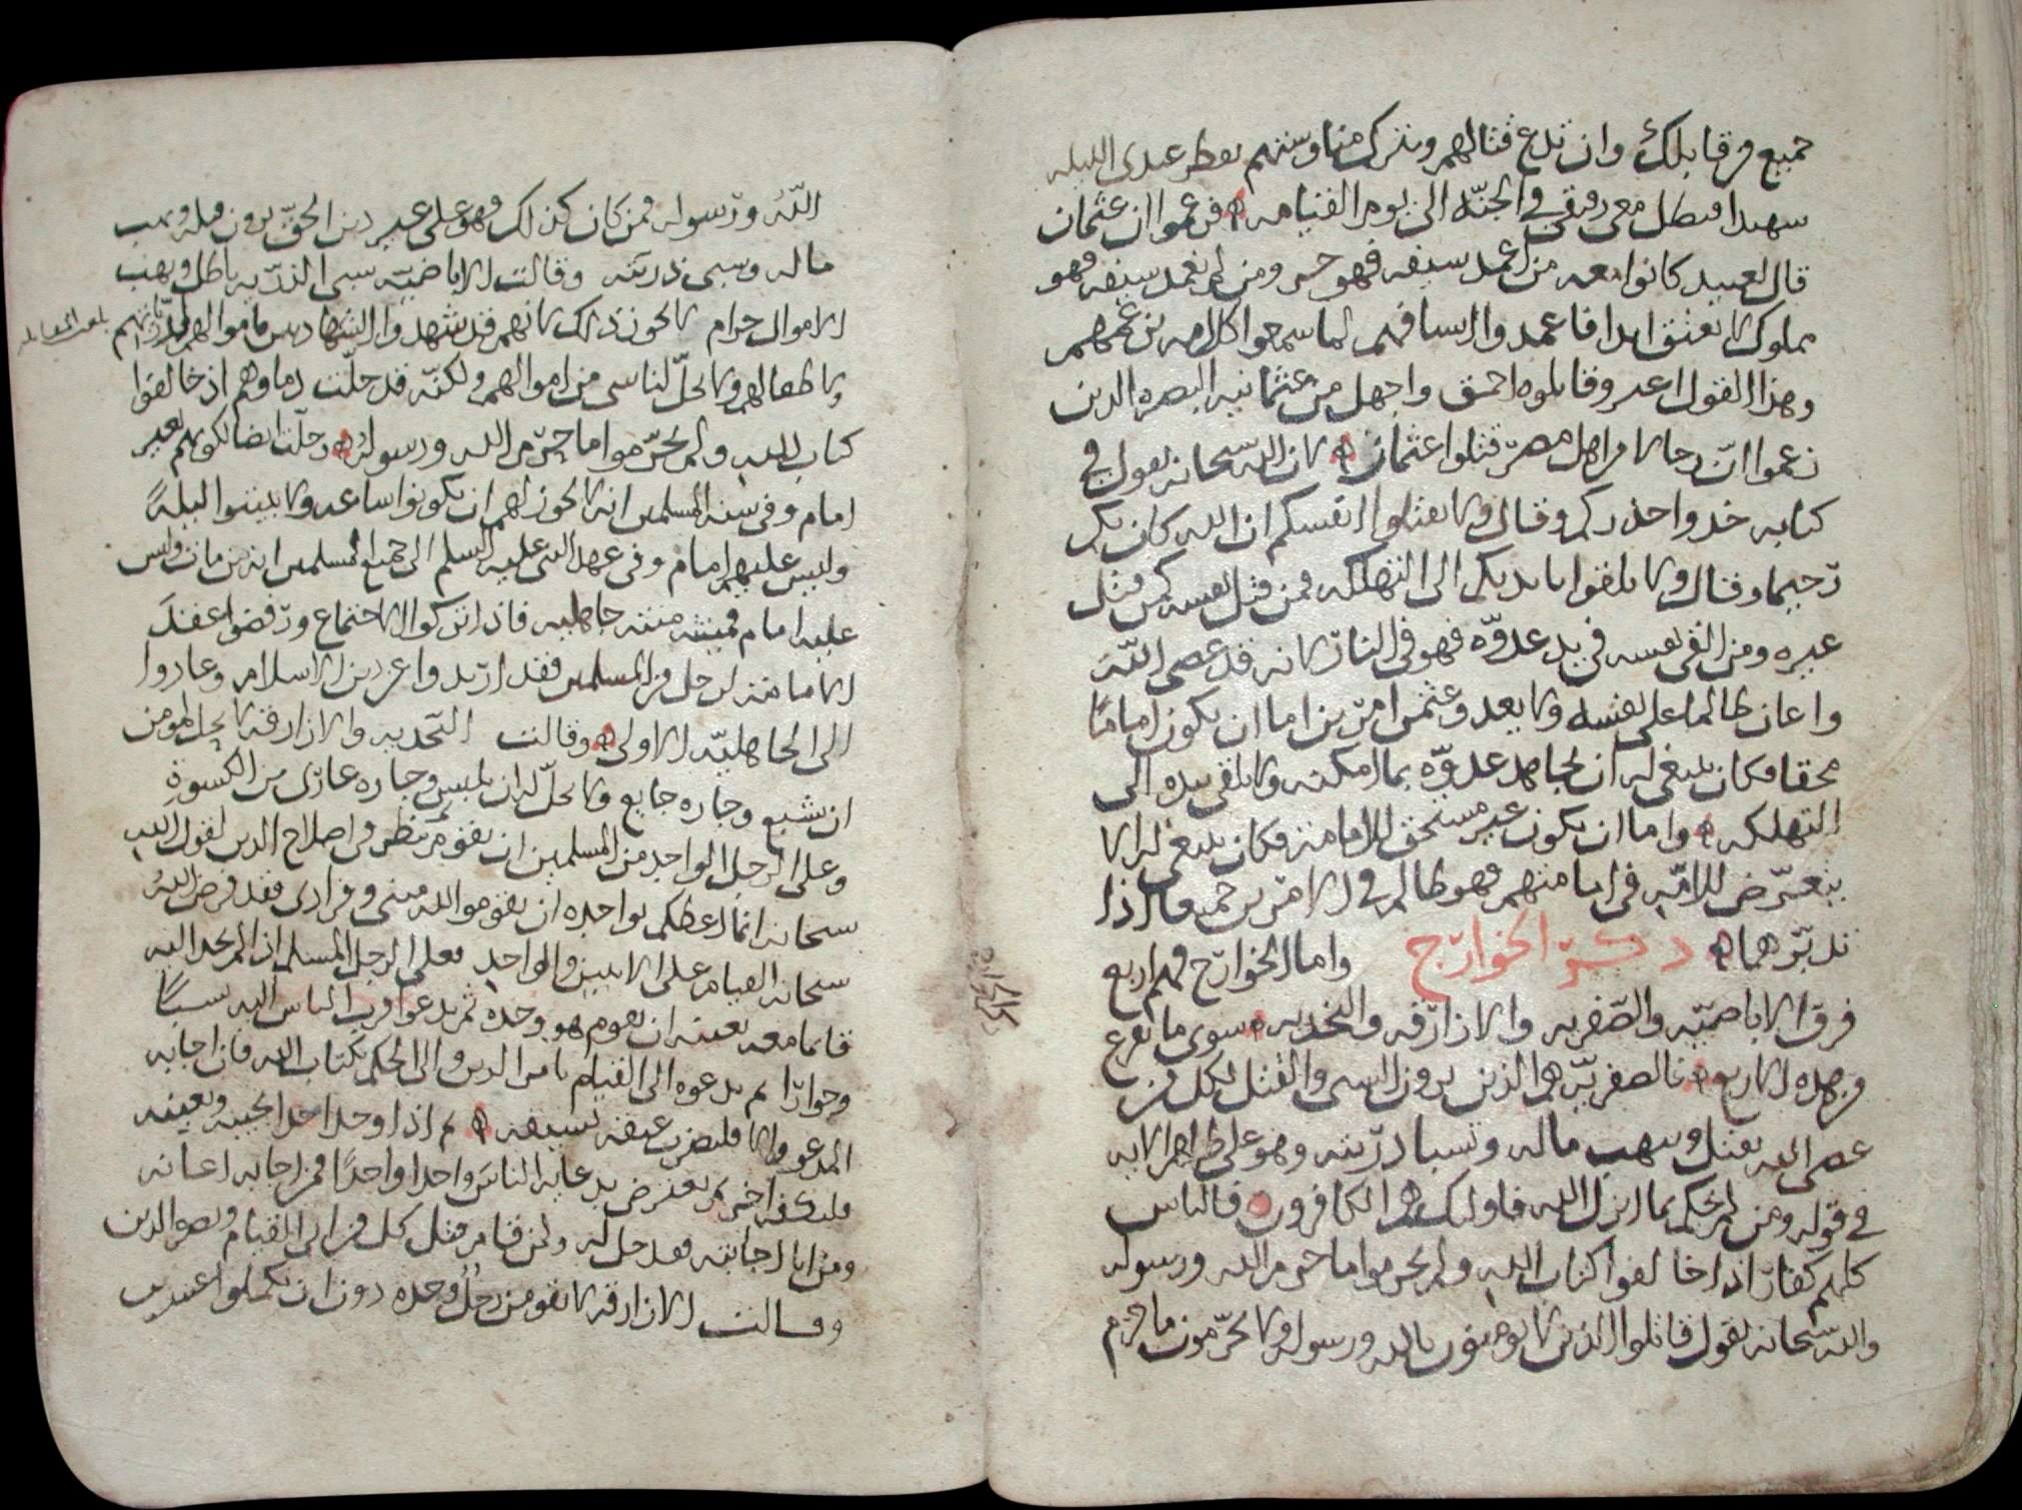 جميع من قابلك وان تدع قتالهم وتترك مناوشتهم تفطر عندي الليله
سهيدا فتظل معي رفيقي في الجنّه الى يوم القيامه فزعموا ان عثمان
قال لعبيد كانوا معه من اغمد سيفه فهو حر ومن لم يغمد سيفه فهو
مملوك لا يعتق ابدا فاغمدوا اسيافهم لما سمعوا كلامه بزعمهم
وهذا القول اعد وقايلوه احمق واجهل من عثمانيه البصره الذين
زعموا انّ رجالا من اهل مصر قتلوا عثمان لان الله سبحانه يقول في
كتابه خذوا حذركم وقال ولا تقتلوا انفسكم ان الله كان بكم
رحيما وقال ولا تلقوا بايديكم الى التهلكه فمن قتل نفسه كمن قتل
غيره ومن القى نفسه في يد عدوّه فهو في النار لانه قد عصى اللّه
واعان ظالما على نفسه ولا يعدو عثمن امرين اما ان يكون اماما
محقا فكان ينبغي له ان يجاهد عدوّه بما امكنه ولا يلقي بيده الى
التهلكه واما ان يكون غير مستحق للامامة فكان ينبغي له الا
يتعرّض للامّه في امامتهم فهو ظالم في الامرين جميعا اذا
تدبّرهما ذكر الخوارج واما الخوارج فهم اربع
فرق الاباضيّه والصفريه والازارقه والنجديه سوى ما تفرع
من هذه الاربع فالصفريّه هم الذين يرون السبي والقتل لكل من
عصى الله يقتل وينهب ماله وتسبا ذرّيته وهو على ظاهر الايه
في قوله ومن لم يحكم بما انزل الله فاولئك هم الكافرون فالناس
كلهم كفار اذا خالفوا كتاب الله ولم يحرموا ما حرم الله ورسوله
والله سبحانه يقول قاتلوا الذين لا يومنون بالله ورسوله ولا يحرّمون ما حرم
اللّه ورسوله فمن كان كذلك فهو على غير دين الحقّ يرون قتله ونهب
ماله وسبي ذريته وقالت الاباضيّه سبي الذرّيه باطل ونهب
الاموال حرام لا يجوز ذلك لانهم قد شهدوا الشهادتين فاموالهم لذرّياتهم
ولاطفالهم ولا يحلّ لنا شي من اموالهم ولكنّه قد حلّت دماوهم اذ خالفوا
كتاب الله ولم يحرّموا ما حرّم الله ورسوله وحلّت ايضا لكونهم بغير
امام وفي سنه المسلمين انه لا يجوز لهم ان يكونوا ساعه ولا يبيتوا ليلةً
وليس عليهم امام وفي عهد النبي عليه السلم الى جميع المسلمين انه من مات وليس
عليه امام فميتته ميتة جاهليه فاذا تركوا الاجتماع ورفضوا عقد
الامامة لرجل من المسلمين فقد ارتدوا عن دين الاسلام وعادوا
الى الجاهليّه الاولى وقالت النّجديه والازارقه لا يحل لمومن
ان يشبع وجاره جايع ولا يحلّ له ان يلبس وجاره عاري من الكسوة
وعلى الرجل الواحد من المسلمين ان يقوم بنظر في اصلاح الدين لقول الله
سبحانه انما اعظكم بواحده ان تقوموا لله مثنى وفرادى فقد فرض الله
سبحانه القيام على الاثنين والواحد فعلى الرجل المسلم اذا لم يجد اليه
قائما معه يعينه ان يقوم هو وحده ثم يدعوا اقرب الناس اليه سببًا
وجوارًا ثم يدعوه الى القيام بامر الدين والى الحكم بكتاب الله فان اجابه
المدعو والا فليضرب عنقه بسيفه ثم اذا وجد احدا يجيبه ويعينه
فليكتف اخر ثم يعترض بدعايه الناس واحدا واحدًا فمن اجابه اعانه
ومن ابا اجابته فقد حل له ولمن قام قتل كل من ابى القيام ونصر الدين
وقالت الازارقه لا يقومن رجُلٌ وحده دون ان يكملوا عشرين